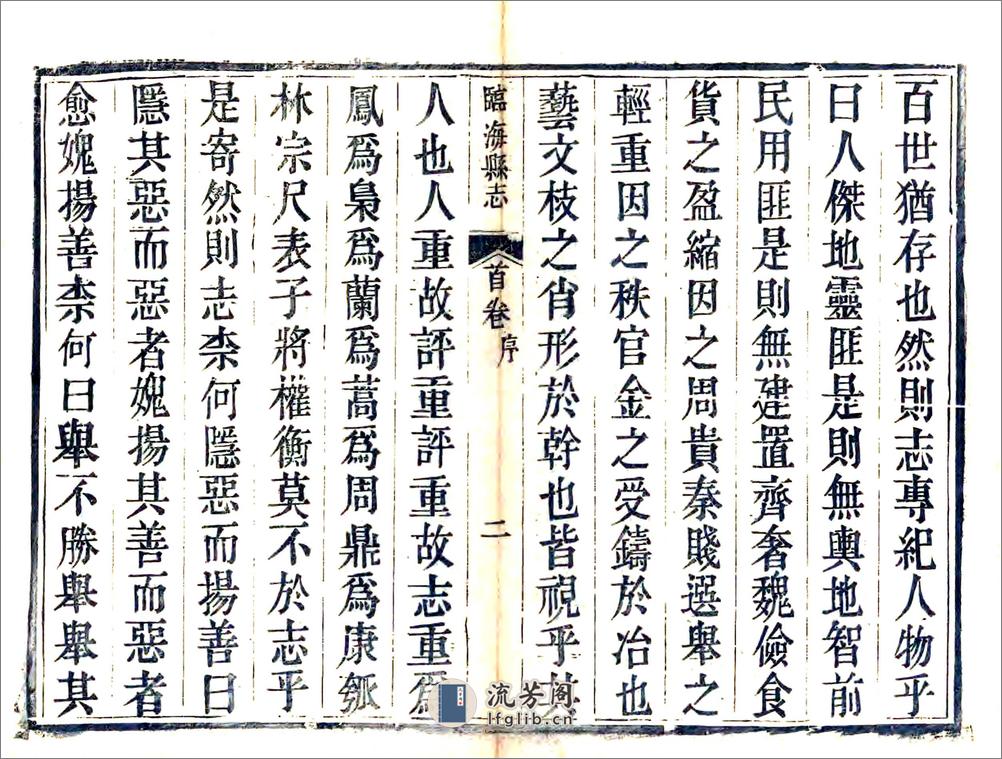 百世猶存也然則志專紀人物乎
曰人傑地靈匪是則無輿地智前
民用匪是則無建置齊奢魏儉食
貨之盈縮因之周貴秦賤選舉之
輕重因之秩官金之受鑄於冶也
藝文枝之肖形於幹也皆視乎其
臨海縣志 首卷 序 二
人也人重故評重評重故志重爲
鳳爲梟爲蘭爲蒿爲周鼎爲康瓠
林宗尺表子將權衡莫不於志乎
是寄然則志柰何隱惡而揚善曰
隱其惡而惡者媿揚其善而惡者
愈媿揚善柰何曰舉不勝舉舉其
流芳阁
lfglib.cn